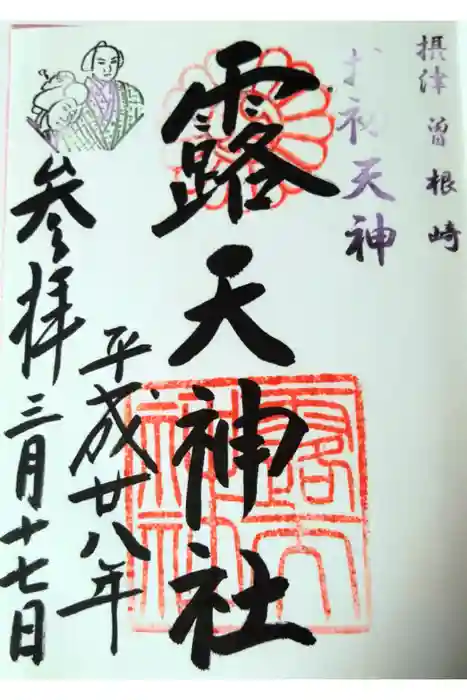 摂津 曽根崎
お初天神
露天神社
平成廿八年
三月十七日
参拝
露天神社